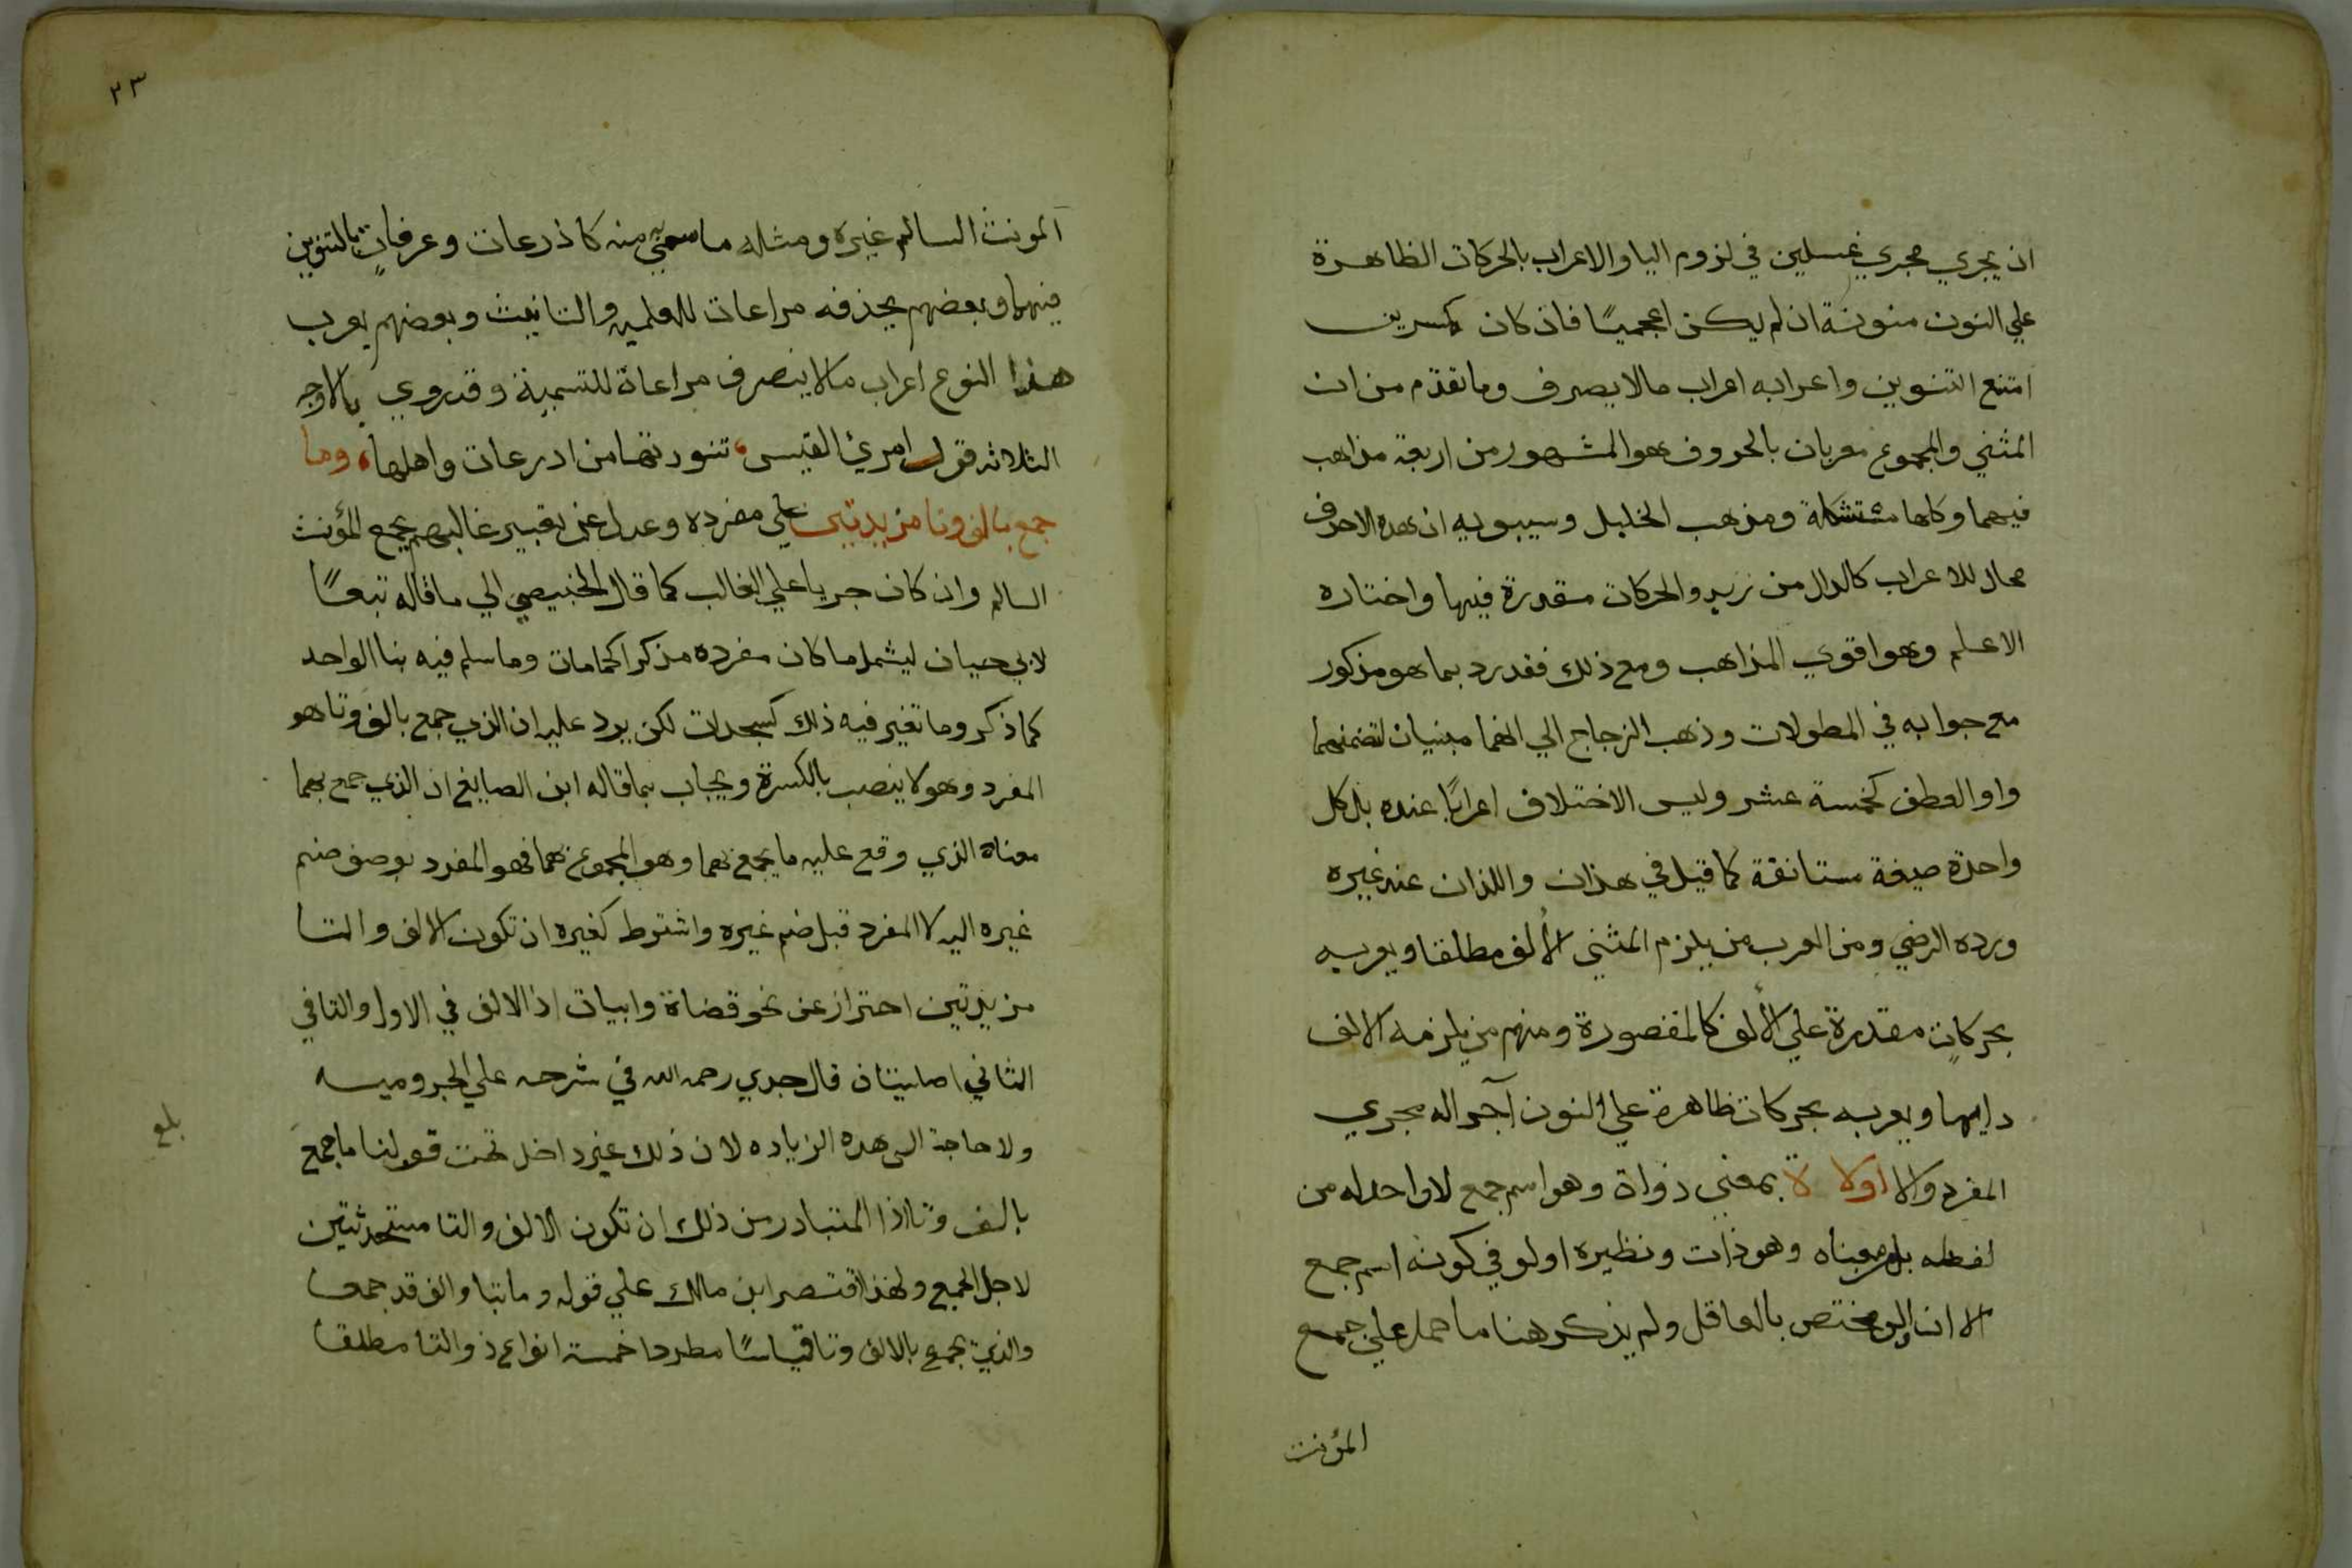 ان يجري مجري غسلين في لزوم اليا والاعراب بالحركات الظاهرة
علي النون منونة ان لم يكن اعجميًا فان كان
امتنع التنوين واعرابه اعراب مالا يصرف وما تقدم من ان
المثني والمجموع معربان بالحروف هو المشهور من اربعة مذاهب
فيهما وكلها ومذهب الخليل وسيبويه ان هذه الاحرف
محال للاعراب كالدال من زيد والحركات مقدرة فيها واختاره
الاعلم وهو اقوي المذاهب ومع ذلك فقد رد بما هو مذكور
مع جوابه في المطولات وذهب الزجاج الي انهما مبنيان لتضمنهما
واو العطف كخمسة عشر وليس الاختلاف اعرابًا عنده بل كل
واحدة صيغة مستانفة كما قيل في هذان واللذان عند غيره
ورده الرضي ومن العرب من يلزم المثني الألف مطلقا ويعربه
بحركاتٍ مقدرة علي الألف كالمقصورة ومنهم من يلزمه الالف
دايما ويعربه بحركات ظاهرة علي النون آجراله مجري
المفرد والا اولا ة بمعني ذواة وهو اسم جمع لا واحد له من
لفظه بل من معناه وهو ذات ونظيره اولو في كونه اسم جمع
الا ان اولو مختص بالعاقل ولم يذكر هنا ما حمل علي جمع
المؤنث
٢٣
المونث السالم غيره ومثله ما سمي به منه كاذرعات وعرفاتٍ بالتنوين
فيهما وبعضهم يحذفه مراعات للعلميه والتانيث وبعضهم يعرب
هذا النوع اعراب مالا ينصرف مراعاة للتسمية وقد روي بالاوجه
الثلاثه قول امرئ القيس، تنورتها من ادرعات واهلها، وما
جمع بالف وتا مزيدتين علي مفرده وعدل عن تعبير غالبهم بجمع المؤنث
السالم وان كان جريا علي الغالب كما قال الخبيصي الي ما قاله تبعًا
لابي حيان ليشمل ما كان مفرده مذكرا كحمامات وما سلم فيه بنا الواحد
كما ذكر وما تغير فيه ذلك كسجدات لكن يرد عليه ان الذي جمع بالف وتا هو
المفرد وهو لا ينصب بالكسرة ويجاب بما قاله ابن الصايغ ان الذي جمع بهما
معناه الذي وقع عليه ما يجمع بهما وهو المجموع بهما فهو المفرد بوصف ضم
غيره اليه لا المفرد قبل ضم غيره واشترط كغيره ان تكون الالف والتا
مزيدتين احتراز عن نحو قضاة وابيات اذ الالف في الاول والتا في
الثاني اصليتان قال جدي رحمه الله في شرحه علي الجروميه
ولا حاجة الى هذه الزياده لان ذلك غير داخل تحت قولنا ما جمع
بلغ
بالف وتا اذ المتبادر من ذلك ان تكون الالف والتا مستحدثتين
لاجل الجمع ولهذا اقتصر ابن مالك علي قوله وما بتا والف قد جمعا
والذي يجمع بالالف وتا قياسًا مطردا خمسة انواع ذو التا مطلقا